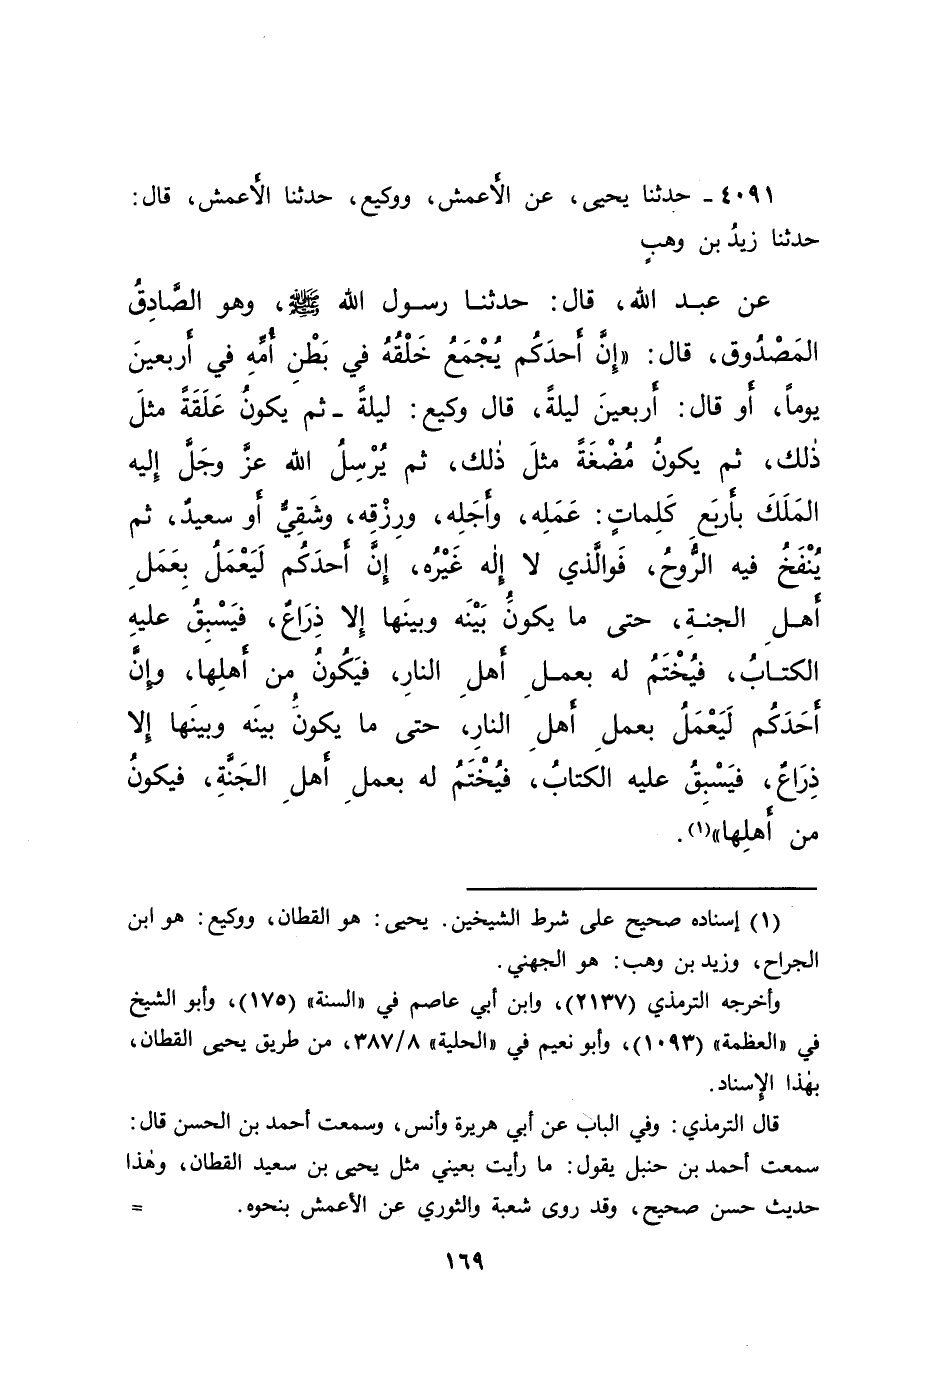 ٤٠٩١ ـ حدثنا يحيى، عن الأعمش، ووكيع، حدثنا الأعمش، قال:
حدثنا زيدُ بن وهبٍ
عن عبـد الله، قال: حدثنـا رسـول الله ﷺ، وهو الصَّادِقُ
المَصْدُوق، قال: «إِنَّ أَحدَكُم يُجْمَعُ خَلْقُهُ في بَطْنِ أُمِّهِ في أَربعينَ
يوماً، أَو قال: أَربعينَ ليلةً، قال وكيع: ليلةً ـ ثم يكونُ عَلَقَةً مثلَ
ذٰلك، ثم يكونُ مُضْغَةً مثلَ ذٰلك، ثم يُرْسِلُ الله عزَّ وجَلَّ إِليه
المَلَكَ بأَربَعِ كَلِماتٍ: عَمَلِه، وأَجَلِه، ورِزْقِه، وشَقِيٌّ أَو سعيدٌ، ثم
يُنْفَخُ فيه الرُّوحُ، فَوالَّذي لا إِلٰه غَيْرُه، إِنَّ أَحدَكُم لَيَعْمَلُ بِعَمَلِ
أَهـلِ الجنـةِ، حتى ما يكونُ بَيْنَه وبينَها إِلا ذِرَاعٌ، فيَسْبِقُ عليهِ
الكتـابُ، فيُخْتَمُ له بعمـلِ أَهلِ النارِ، فيَكُونُ من أَهلِها، وإِنَّ
أَحَدَكُم لَيَعْمَلُ بعملِ أَهلِ النارِ، حتى ما يكونُ بينَه وبينَها إِلا
ذِرَاعٌ، فيَسْبِقُ عليه الكتابُ، فيُخْتَمُ له بعملِ أَهلِ الجَنَّةِ، فيكونُ
من أَهلِها»(١).
(١) إسناده صحيح على شرط الشيخين. يحيى: هو القطان، ووكيع: هو ابن
الجراح، وزيد بن وهب: هو الجهني.
وأخرجه الترمذي (٢١٣٧)، وابن أبي عاصم في «السنة» (١٧٥)، وأبو الشيخ
في «العظمة» (١٠٩٣)، وأبو نعيم في «الحلية» ٣٨٧/٨، من طريق يحيى القطان،
بهٰذا الإِسناد.
قال الترمذي: وفي الباب عن أبي هريرة وأنس، وسمعت أحمد بن الحسن قال:
سمعت أحمد بن حنبل يقول: ما رأيت بعيني مثل يحيى بن سعيد القطان، وهٰذا
حديث حسن صحيح، وقد روى شعبة والثوري عن الأعمش بنحوه. =
١٦٩